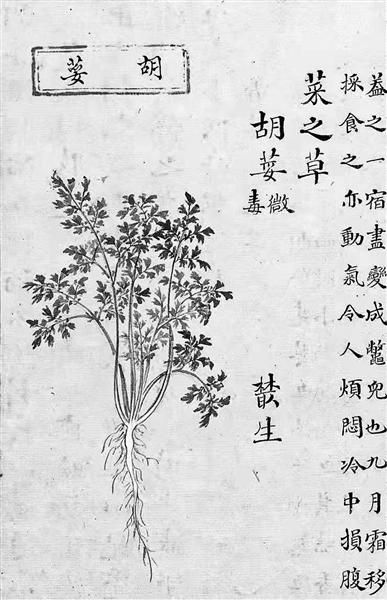 葢之一宿盡變成鼈兒也九月霜移
採食之亦動氣令人煩悶冷中損腹
菜之草
胡荽 微毒 藂生
胡荽